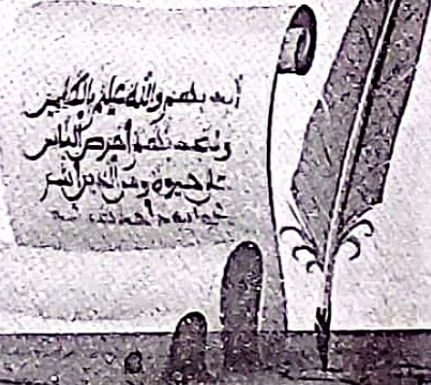 أيديهم والله عليم بالظلمين
ولتجدنهم أحرص الناس
على حيوة ومن الذين أشر